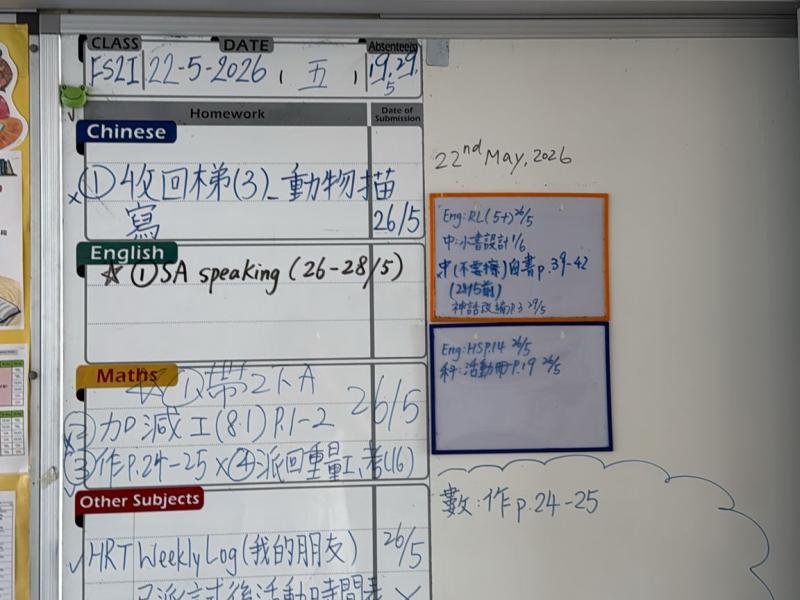 CLASS DATE Absentees
FS2I 22-5-2026 ( 五 ) 19.29.
5
Homework Date of Submission
Chinese
① 收回梯(3)_動物描
寫 26/5
English
☆ ① SA speaking (26-28/5)
Maths
① 帶2下A 26/5
② 加減工(8.1) P.1-2
③ 作P.24-25 x ④ 派回重量工,考(16)
Other Subjects
✓ HRT Weekly Log (我的朋友) 26/5
已派試後活動時間表
22nd May, 2026
Eng: RL(5+) 26/5
中: 小書設計 1/6
中(不要擦)自書p.39-42
神話改編P.3 29/5
Eng: HSP.14 26/5
科: 活動冊P.19 26/5
數: 作p.24-25